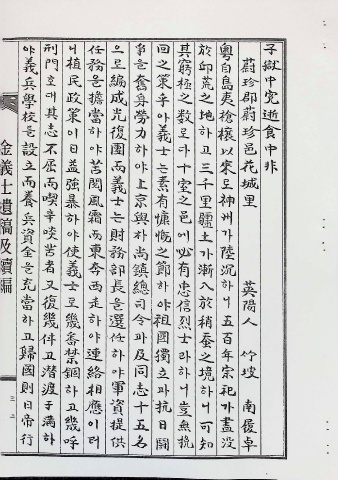 子獄中寃逝食中非
蔚珍郡蔚珍邑花城里
英陽人 竹坡 南履卓
粤自島夷搶攘以來로神州가陸沉하니五百年宗祀가盡沒
於邱荒之地하고三千里疆土가漸入於稍蚕之境하니可知
其窮極之数로다十室之邑에必有忠信烈士라하니豈無挽
回之策乎아義士는素有慷慨之節하야祖國獨立과抗日闘
爭을奮身勞力하야上京與朴尚鎮總司令과及同志十五名
으로編成光復團而義士는財務部長을選任하야軍資提供
任務을擔當하야苦閱風霜而東奔西走하야連絡相應이러
니植民政策이日益強暴하야使義士로幾番禁錮하고幾呼
刑門호대其志不屈而喫辛茹苦者又復幾件고潜渡于満하
야義兵學校을設立而養兵資金을充當하고歸國則日帝行
金義士遺稿及續編